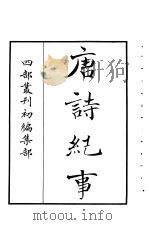 唐詩紀事
四部叢刊初編集部
mtoou.info